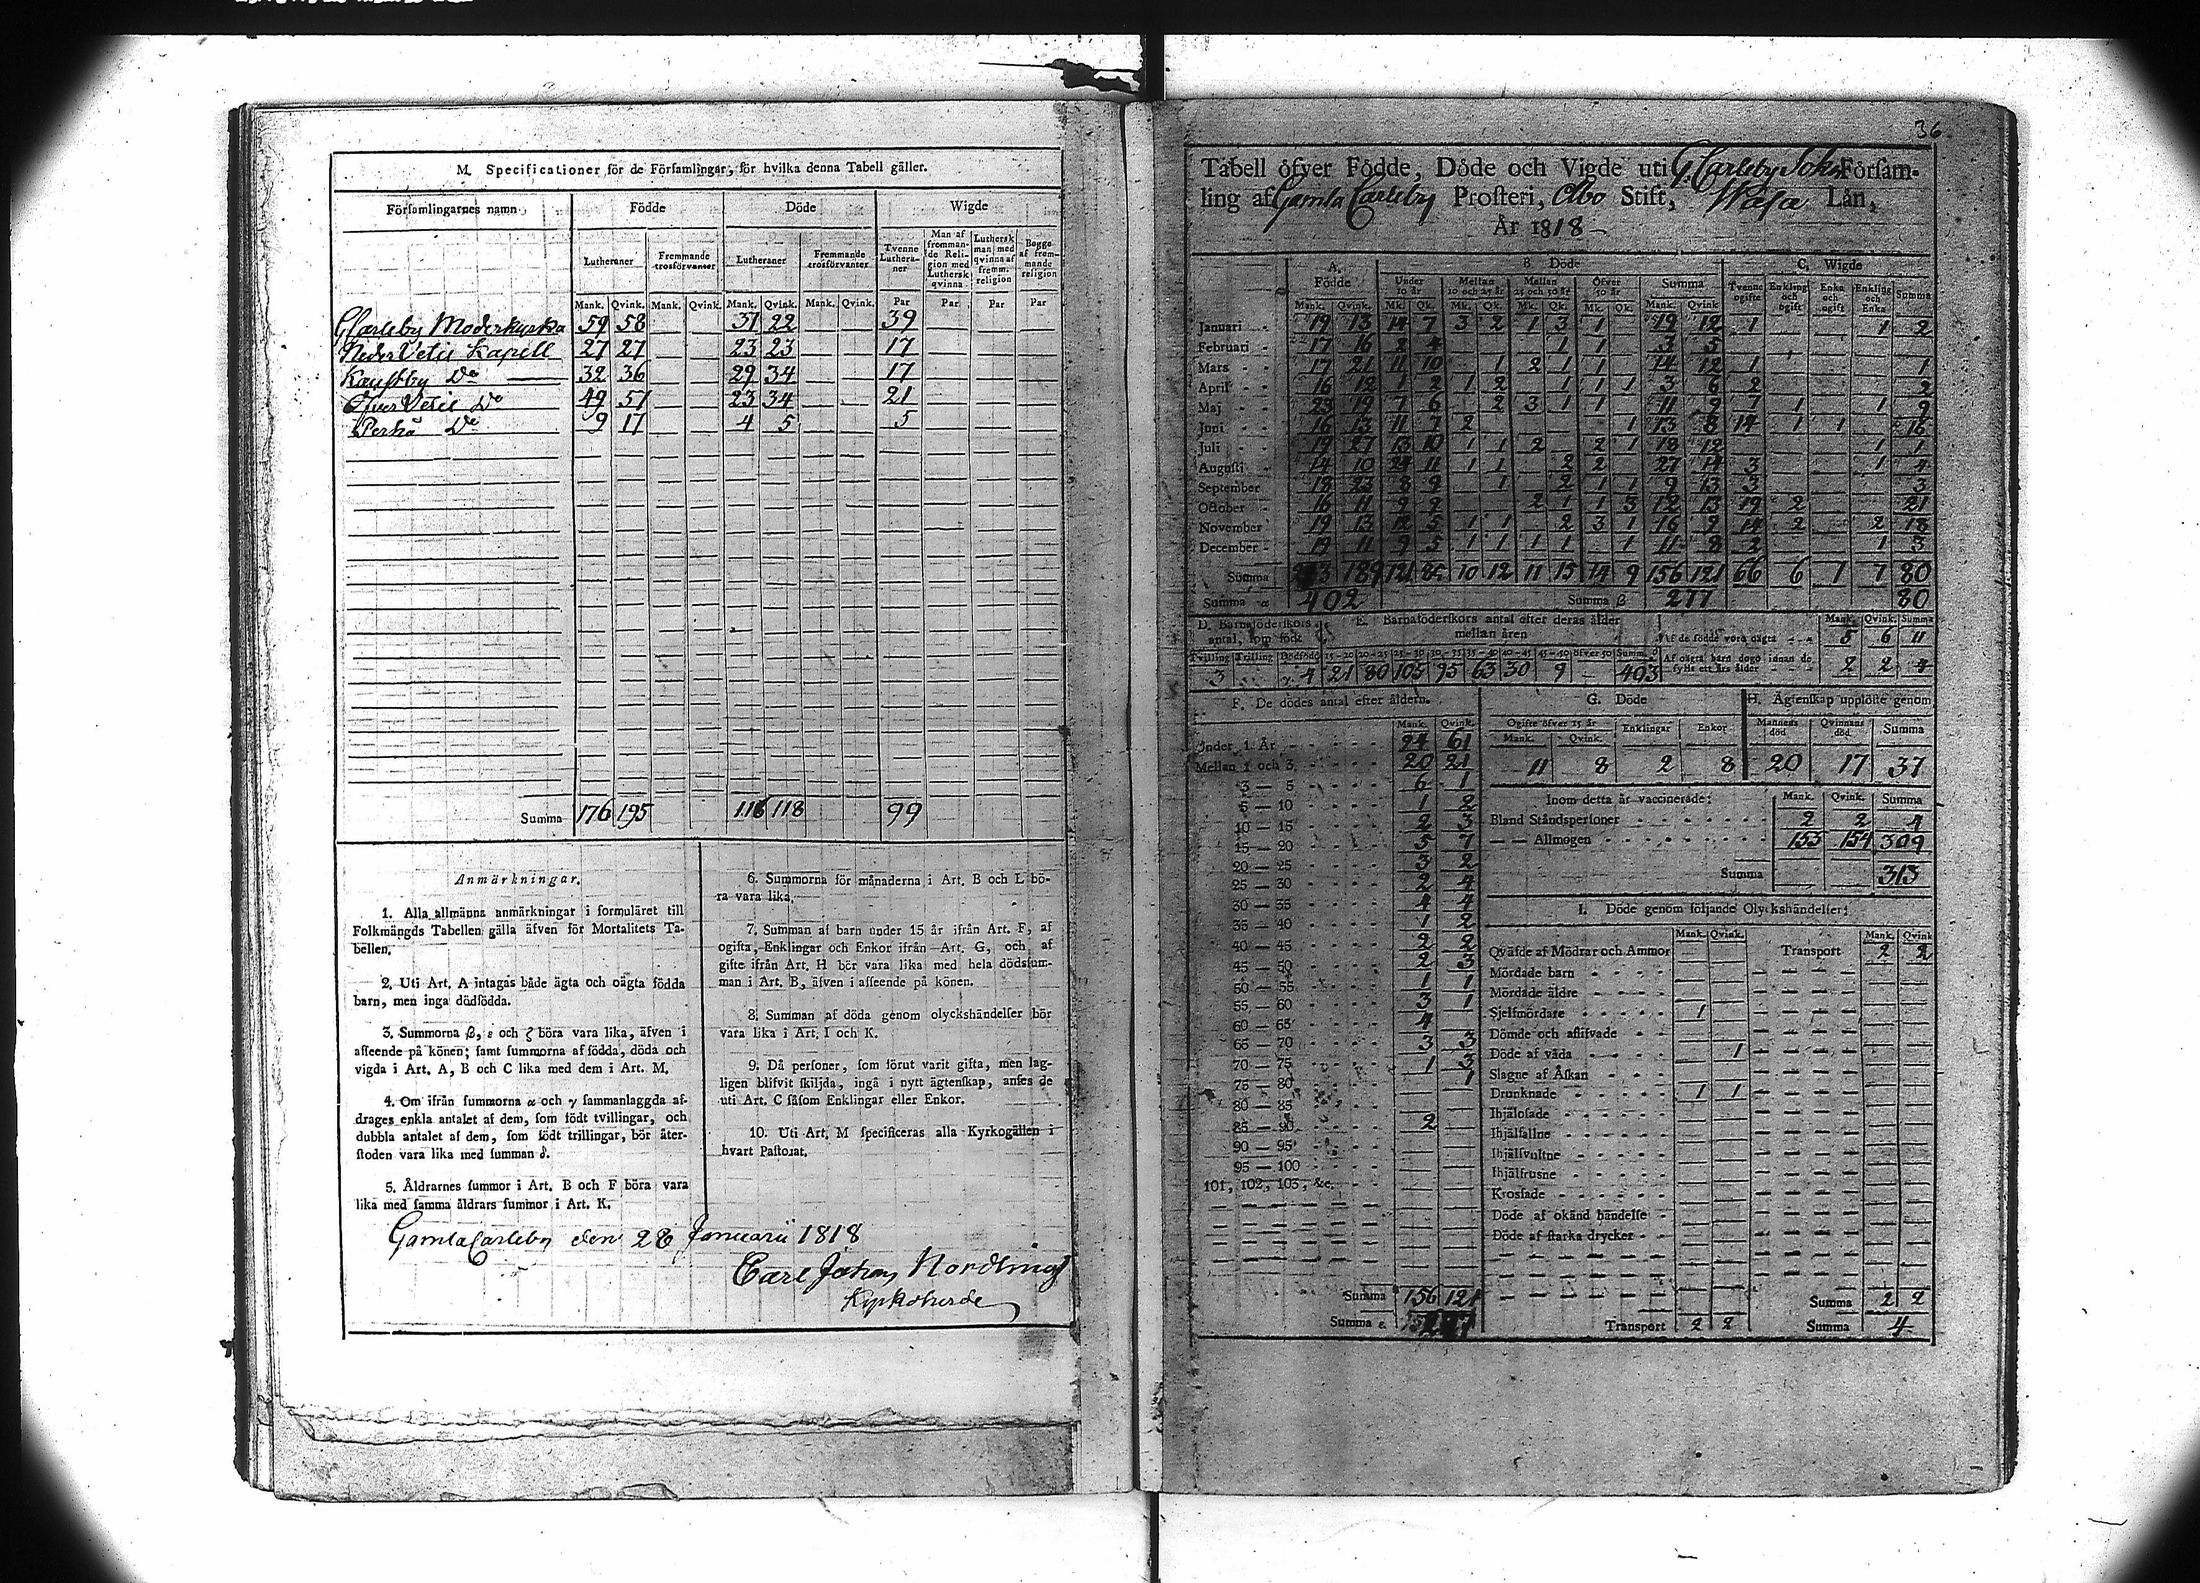 M. Specificationer för de Församlingar, för hvilka denna Tabell gäller.
Församlingarnes namn Födde Döde Wigde
Lutheraner Fremmande trosförvanter Lutheraner Fremmande trosförvanter Tvenne Lutheraner Man af frommande Religion med Luthersk qvinna Luthersk man med qvinna af fremm. religion Begge af frommande religion
Mank. Qvink. Mank. Qvink. Mank. Qvink. Mank. Qvink. Par Par Par Par
GCarleby Moderkyrka 59 58 — — 37 22 — — 39 — — —
NederVetil Kapell 27 27 — — 23 23 — — 17 — — —
Kaustby Do 32 36 — — 29 34 — — 17 — — —
ÖfverVetil Do 49 57 — — 23 34 — — 21 — — —
Perhå Do 9 17 — — 4 5 — — 5 — — —
Summa 176 195 116 118 99
Anmärkningar.
1. Alla allmänna anmärkningar i formuläret till
Folkmängds Tabellen gälla äfven för Mortalitets Ta-
bellen.
2. Uti Art. A intagas både ägta och oägta födda
barn, men inga dödfödda.
3. Summorna β, ε och ζ böra vara lika, äfven i
afseende på könen; samt summorna af födda, döda och
vigda i Art. A, B och C lika med dem i Art. M.
4. Om ifrån summorna α och γ sammanlaggda af-
drages enkla antalet af dem, som födt tvillingar, och
dubbla antalet af dem, som födt trillingar, bör åter-
stoden vara lika med summan δ.
5. Åldrarnes summor i Art. B och F böra vara
lika med samma åldrars summor i Art. K.
6. Summorna för månaderna i Art. B och L bö-
ra vara lika.
7. Summan af barn under 15 år ifrån Art. F, af
ogifta, Enklingar och Enkor ifrån Art. G, och af
gifte ifrån Art. H bör vara lika med hela dödssum-
man i Art. B, äfven i afseende på könen.
8. Summan af döda genom olyckshändelser bör
vara lika i Art. I och K.
9. Då personer, som förut varit gifta, men lag-
ligen blifvit skiljda, ingå i nytt ägtenskap, anses de
uti Art. C såsom Enklingar eller Enkor.
10. Uti Art. M specificeras alla Kyrkogällen i
hvart Pastorat.
GamlaCarleby den 28 Januarii 1818
Carl Johan Nordling
Kyrkoherde
36
Tabell öfver Födde, Döde och Vigde uti G. Carleby Sokn Försam-
ling af Gamla Carleby Prosteri, Abo Stift, Wasa Län,
År 1818
A. Födde B. Döde C. Wigde
Under 10 år Mellan 10 och 25 år Mellan 25 och 50 år Öfver 50 år Summa Tvenne ogifte Enkling och ogift Enka och ogift Enkling och Enka Summa
Mank. Qvink. Mk. Qk. Mk. Qk. Mk. Qk. Mk. Qk. Mank. Qvink
Januari 19 13 14 7 3 2 1 3 1 19 12 1 1 2
Februari 17 16 2 4 1 1 3 5
Mars 17 21 11 10 1 2 1 1 14 12 1 1
April 16 12 1 2 1 2 1 1 1 3 6 2 2
Maj 23 19 7 6 2 3 1 1 11 9 7 1 1 9
Juni 16 13 11 7 2 1 13 8 14 1 1 16
Juli 19 27 13 10 1 1 2 2 1 18 12 1 1
Augusti 14 10 24 11 1 1 2 2 27 14 3 1 4
September 18 23 8 9 1 2 1 1 9 13 3 3
October 16 11 9 9 2 1 1 3 12 13 19 2 21
November 19 13 12 5 1 1 2 3 1 16 9 14 2 2 18
December 19 11 9 5 1 1 1 1 1 11 8 2 1 3
Summa 213 189 121 85 10 12 11 15 14 9 156 121 66 6 1 7 80
Summa α 402 Summa β 277 80
D. Barnaföderskors antal, som födt
E. Barnaföderskors antal efter deras ålder mellan åren
Mank. Qvink. Summa
Af de födde voro oägta 5 6 11
Tvilling Trilling Dödfödd 15-20 20-25 25-30 30-35 35-40 40-45 45-50 öfver 50 Summ. δ
Af oägta barn dogo innan de fyllt ett års ålder 2 2 4
3 γ. 4 21 80 105 95 63 30 9 — 403
F. De dödes antal efter åldern.
Mank. Qvink.
Under 1 År 94 61
Mellan 1 och 3 20 21
3 — 5 6 1
5 — 10 1 2
10 — 15 2 3
15 — 20 5 7
20 — 25 3 2
25 — 30 2 4
30 — 35 4 4
35 — 40 1 2
40 — 45 2 2
45 — 50 2 3
50 — 55 1 1
55 — 60 3 1
60 — 65 4
65 — 70 3 3
70 — 75 1 3
75 — 80 1
80 — 85
85 — 90 2
90 — 95
95 — 100
101, 102, 103, &c.
Summa 156 121
Summa ε 277
G. Döde
Ogifte öfver 15 år Enklingar Enkor
Mank. Qvink.
11 8 2 8
H. Ägtenskap upplöste genom
Mannens död Qvinnans död Summa
20 17 37
Inom detta år vaccinerade: Mank. Qvink. Summa
Bland Ståndspersoner 2 2 4
— — Allmogen 155 154 309
Summa 313
I. Döde genom följande Olyckshändelser:
Mank. Qvink. Mank. Qvink
Qväfde af Mödrar och Ammor Transport 2 2
Mördade barn
Mördade äldre
Sjelfmördare 1
Dömde och aflifvade
Döde af våda 1
Slagne af Åskan
Drunknade 1 1
Ihjälosade
Ihjälfallne
Ihjälsvultne
Ihjälfrusne
Krossade
Döde af okänd händelse
Döde af starka drycker
Summa 2 2
Transport 2 2 Summa 4